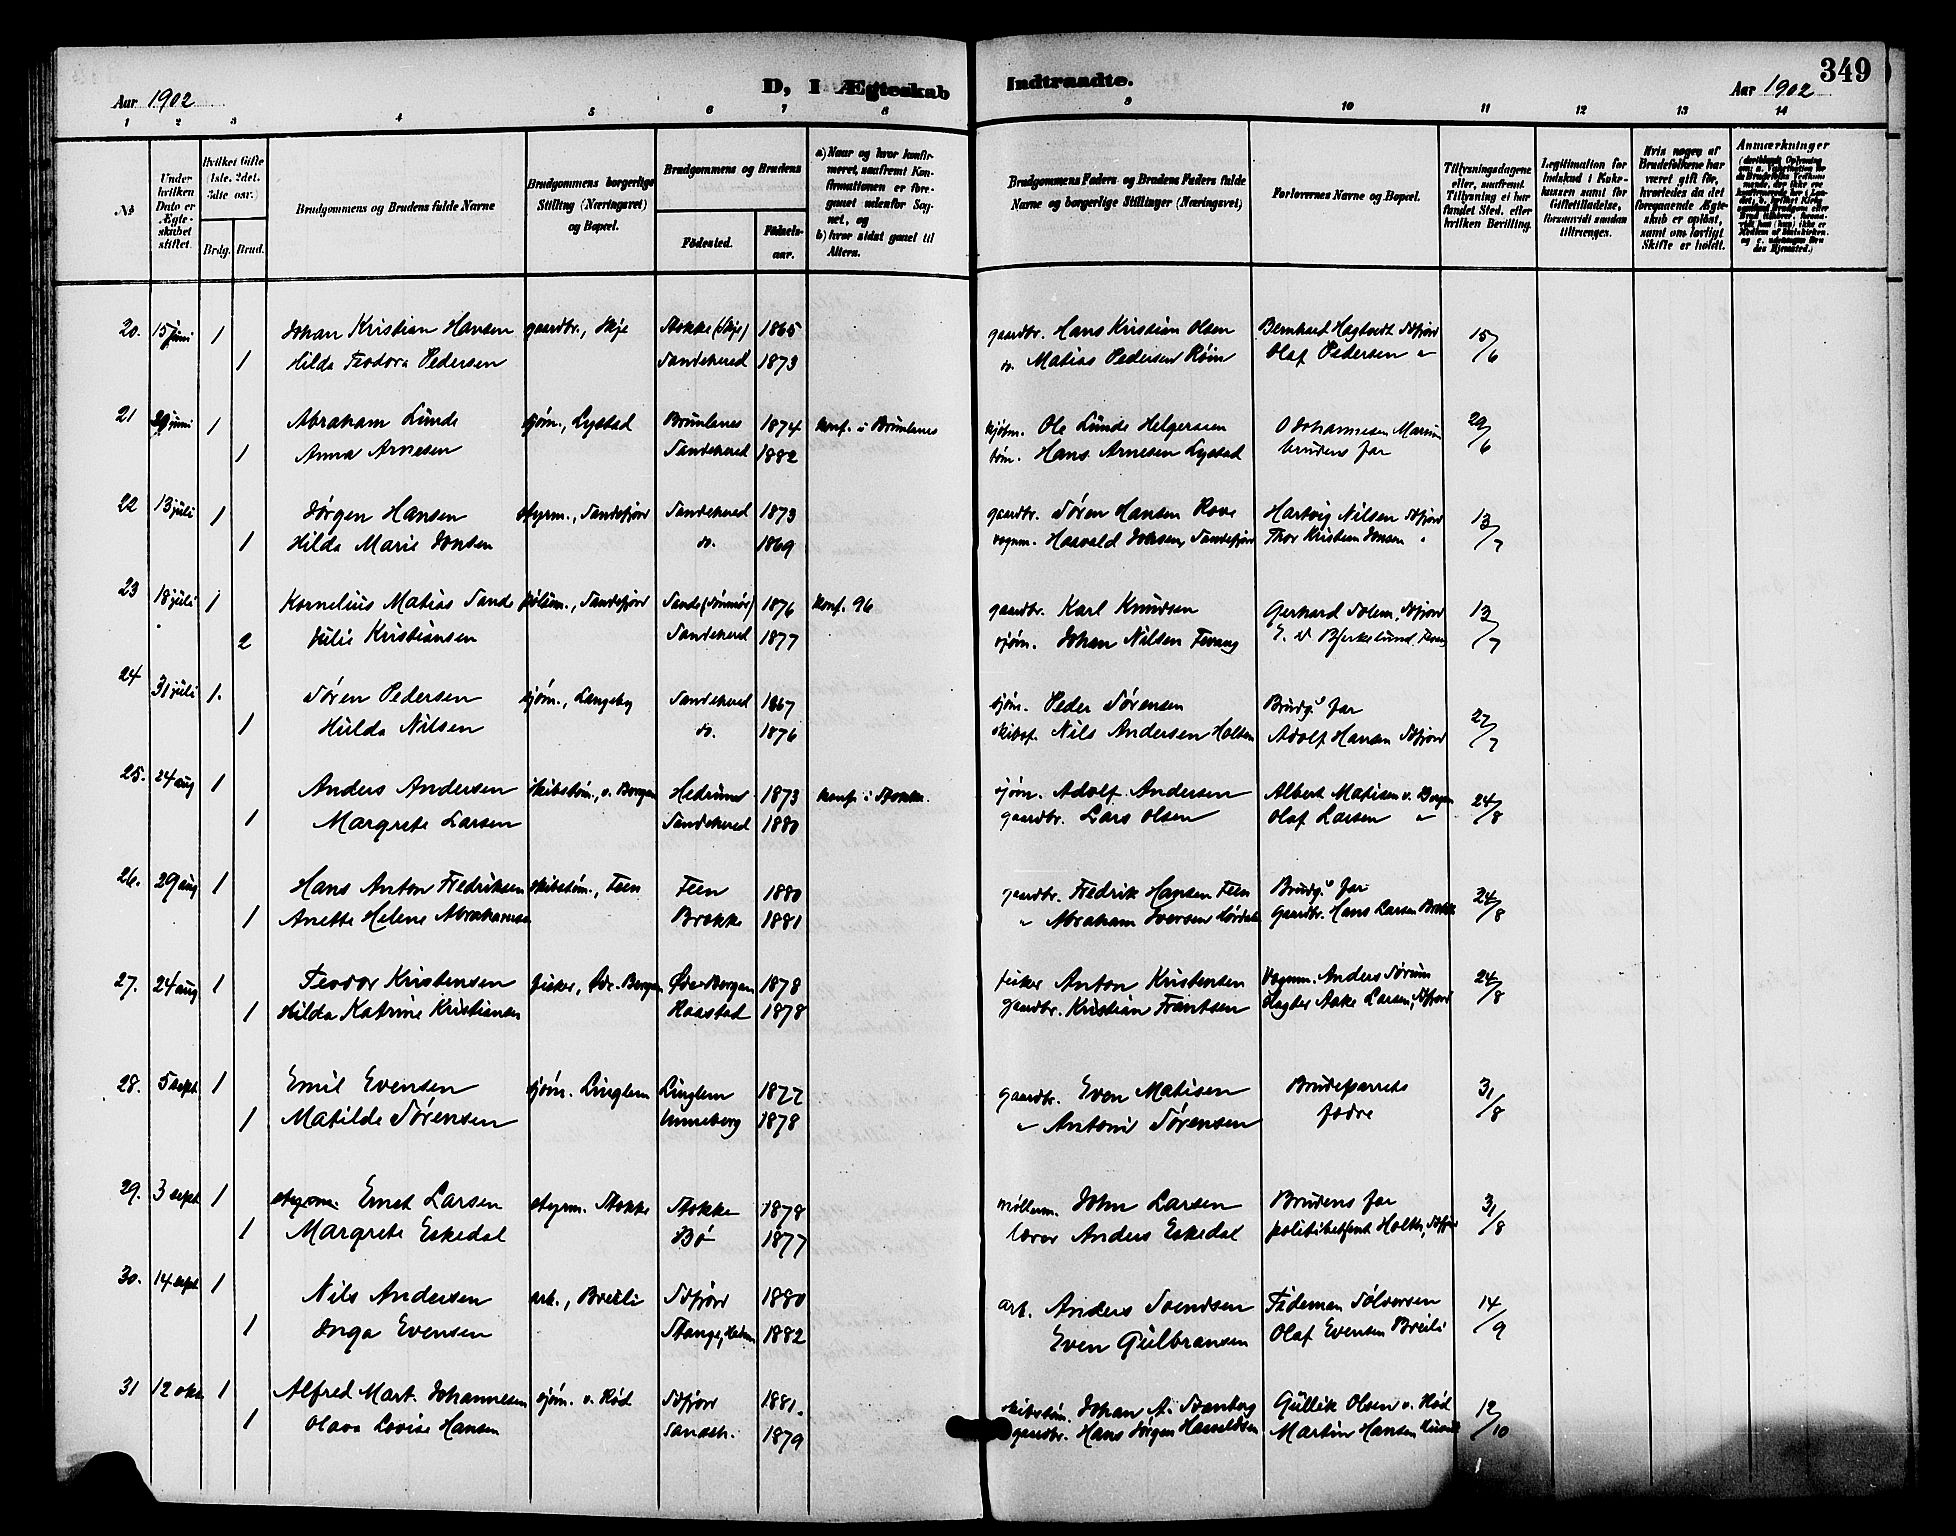 349
D, I Ægteskab Indtraadte.
Aar 1902 Aar 1902
1 2 3 4 5 6 7 8 9 10 11 12 13 14
№
Under hvilken Dato er Ægteskabet stiftet.
Hvilket Gifte (1ste, 2det, 3die osv.) Brdg. Brud.
Brudgommens og Brudens fulde Navne
Brudgommens borgerlige Stilling (Næringsvei) og Bopæl.
Brudgommens og Brudens Fødested. Fødselsaar.
a) Naar og hvor konfirmeret, saafremt Konfirmationen er foregaaet udenfor Sognet, og b) hvor sidst gaaet til Alters.
Brudgommens Faders og Brudens Faders fulde Navne og borgerlige Stillinger (Næringsvei)
Forlovernes Navne og Bopæl.
Tillysningsdagene eller, saafremt Tillysning ei har fundet Sted, efter hvilken Bevilling.
Legitimation for Indskud i Enkekassen samt for Giftetilladelse, forsaavidt saadan tiltrænges.
Hvis nogen af Brudefolkene har været gift før, hvorledes da det foregaaende Ægteskab er opløst, samt om lovligt Skifte er holdt.
Anmærkninger
20. 15 juni 1 Johan Kristian Hansen gaardbr., Skje Stokke (Skje) 1865 gaardbr. Hans Kristian Olsen Bernhard Hagtvedt Sdfjord 15/6
1 Hilda Teodora Pedersen Sandehered 1873 do. Matias Pedersen Røin Olaf Pedersen "
21 29 juni 1 Abraham Lunde sjøm., Lystad Brunlanes 1874 konf. i Brunlanes Ole Lunde Helgersen O Johannesen 29/6
1 Anna Arnesen Sandehered 1882 tøm. Hans Arnesen Lystad brudens far
22 13 juli 1 Jørgen Hansen styrm., Sandefjord Sandehered 1873 gaardbr. Søren Hansen Rove Hartvig Nilsen Sdfjord 13/7
1 Hilda Marie Jonsen do. 1869 vognm. Haavald Johsen, Sandefjord Thor Kristian Jonsen "
23 18 juli 1 Kornelius Matias Sande Sandefjord Sande (Søndmør) 1876 konf. 96 gaardbr. Karl Knudsen Gerhard Solem, Sdfjord 13/7
2 Julie Kristiansen Sandehered 1877 sjøm. Johan Nilsen Fevang Bjerkelund
24 31 juli 1. Søren Pedersen sjøm., Langeby Sandehered 1867 sjøm. Peder Sørensen Brudg.s far 27/7
1 Hulda Nilsen do. 1876 skibsf. Nils Andersen Holtan Adolf Hansen Sdfjord
25. 24 aug 1 Anders Andersen skibstøm., v. Borgen Hedrum 1873 konf. i Stokke. sjøm. Adolf Andersen Albert Matisen v. Borgen 24/8
1 Margrete Larsen Sandehered 1880 gaardbr. Lars Olsen Olaf Larsen "
26. 29 aug 1 Hans Anton Fredriksen skibstøm., Feen Feen 1880 gaardbr. Fredrik Hansen Feen Brudg.s far 24/8
1 Anette Helene Abrahamsen Brække 1881 " Abraham Iversen Gaardbr. Hans Larsen
27. 24 aug 1 Teodor Kristensen fisker, Øde-Borgen Øde-Borgen 1878 fisker Anton Kristensen Vognm. Anders Sørum 24/8
1 Hilda Katrine Kristiansen Raastad 1878 gaardbr. Kristian Frantsen Slagter Aake Larsen, Sdfjord
28. 5 sept. 1 Emil Evensen sjøm. Linglem Linglem 1877 gaardbr. Even Matisen Brudeparrets 31/8
1 Matilde Sørensen Unneberg 1878 " Antoni Sørensen fædre
29. 3 sept. 1 styrm. Ernst Larsen styrm. Stokke Stokke 1878 møllerm. John Larsen Brudens far 31/8
1 Margrete Eskedal Bø 1877 lærer Anders Eskedal politibetjent Holth, Sdfjor
30. 14 sept 1 Nils Andersen arb., Breili Sdfjord 1880 arb. Anders Svendsen Tideman Sølversen 14/9
1 Inga Evensen Stange, Hedm 1882 Even Gulbransen Olaf Evensen Breili
31 12 okt 1 Alfred Mart. Johannesen sjøm. v. Rød Sdfjord 1881. skibstøm. Johan A. Gullik Olsen v. Rød 12/10
1 Olava Lovise Hansen Sandeh. 1879 gaardbr. Hans Jørgen Haraldsen Martin Hansen